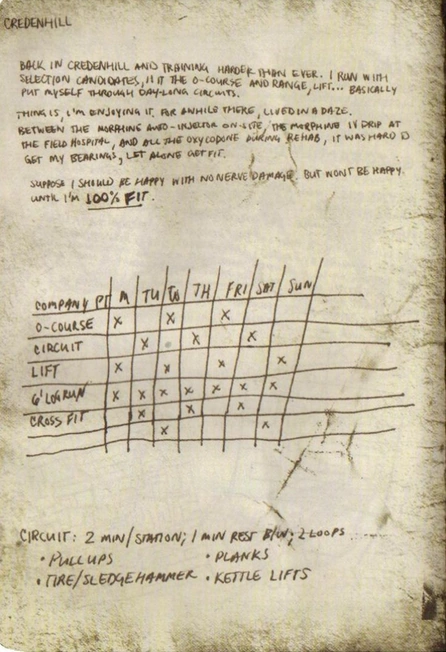 CREDENHILL
BACK IN CREDENHILL AND TRAINING HARDER THAN EVER. I RUN WITH
SELECTION CANDIDATES, HIT THE O-COURSE AND RANGE, LIFT... BASICALLY
PUT MYSELF THROUGH DAY-LONG CIRCUITS.
THING IS, I'M ENJOYING IT. FOR AWHILE THERE, I LIVED IN A DAZE.
BETWEEN THE MORPHINE AUTO-INJECTOR ON-SITE, THE MORPHINE IV DRIP AT
THE FIELD HOSPITAL, AND ALL THE OXYCODONE DURING REHAB, IT WAS HARD TO
GET MY BEARINGS, LET ALONE GET FIT.
SUPPOSE I SHOULD BE HAPPY WITH NO NERVE DAMAGE. BUT WONT BE HAPPY.
UNTIL I'M 100% FIT.
COMPANY PT M TU W TH FRI SAT SUN
O-COURSE X X X
CIRCUIT X X X
LIFT X X X X
6' LOG RUN X X X X X X X
CROSS FIT X X X
X X
CIRCUIT: 2 MIN/STATION; 1 MIN REST B/W; 2 LOOPS
• PULLUPS • PLANKS
• TIRE/SLEDGEHAMMER • KETTLE LIFTS